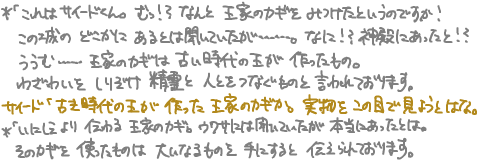 *「これはサイードくん。むっ!?なんと 王家のカギを みつけたというのですか!
この城の どこかに あるとは聞いていたが……。なに!?神殿にあったと!?
ううむ…… 王家のカギは 古い時代の王が 作ったもの。
わざわいを しりぞけ 精霊と 人とをつなぐものと 言われております。
サイード「古き時代の王が 作った 王家のカギか。実物を この目で見ようとはな。
*「いにしえより 伝わる 王家のカギ。ウワサには聞いていたが 本当にあったとは。
そのカギを 使ったものは 大いなるものを 手にすると 伝えられております。